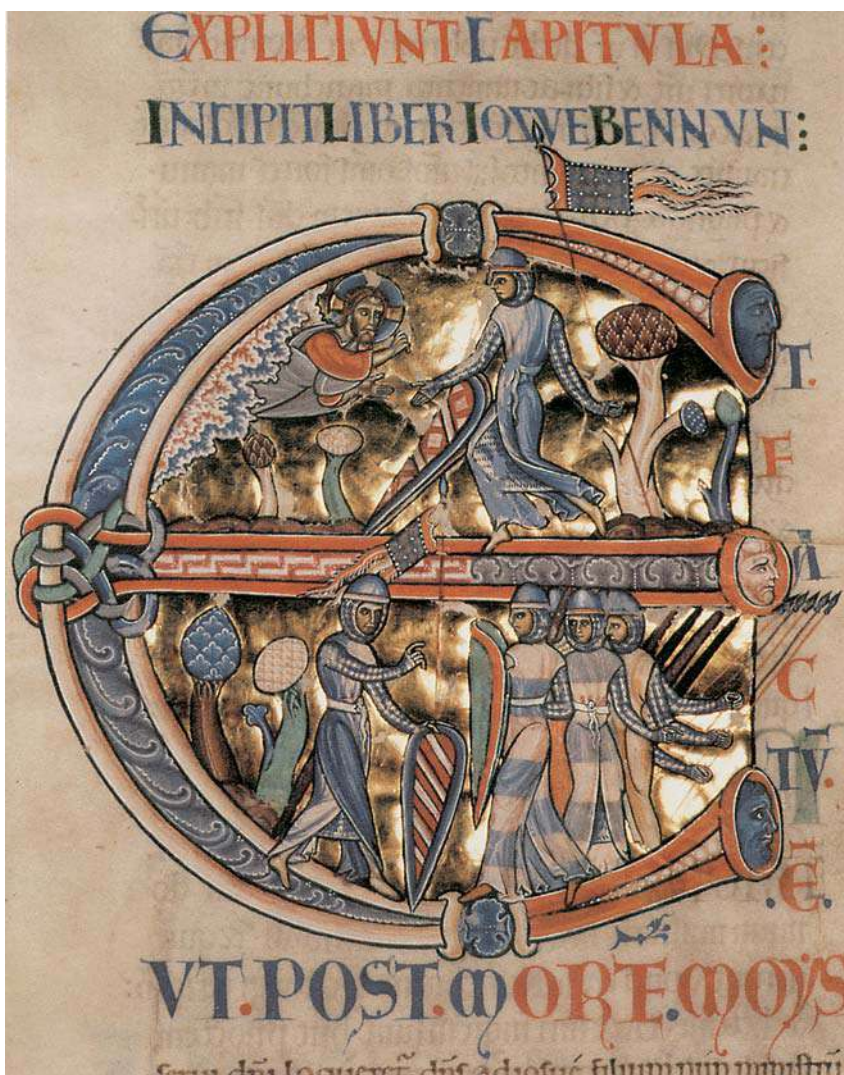 EXPLICIVNT CAPITVLA:
INCIPIT LIBER IOSVE BENNVN:
T.
F
A
C
TV̄.
.Ē.
VT.POST.MORTĒ.MOYS